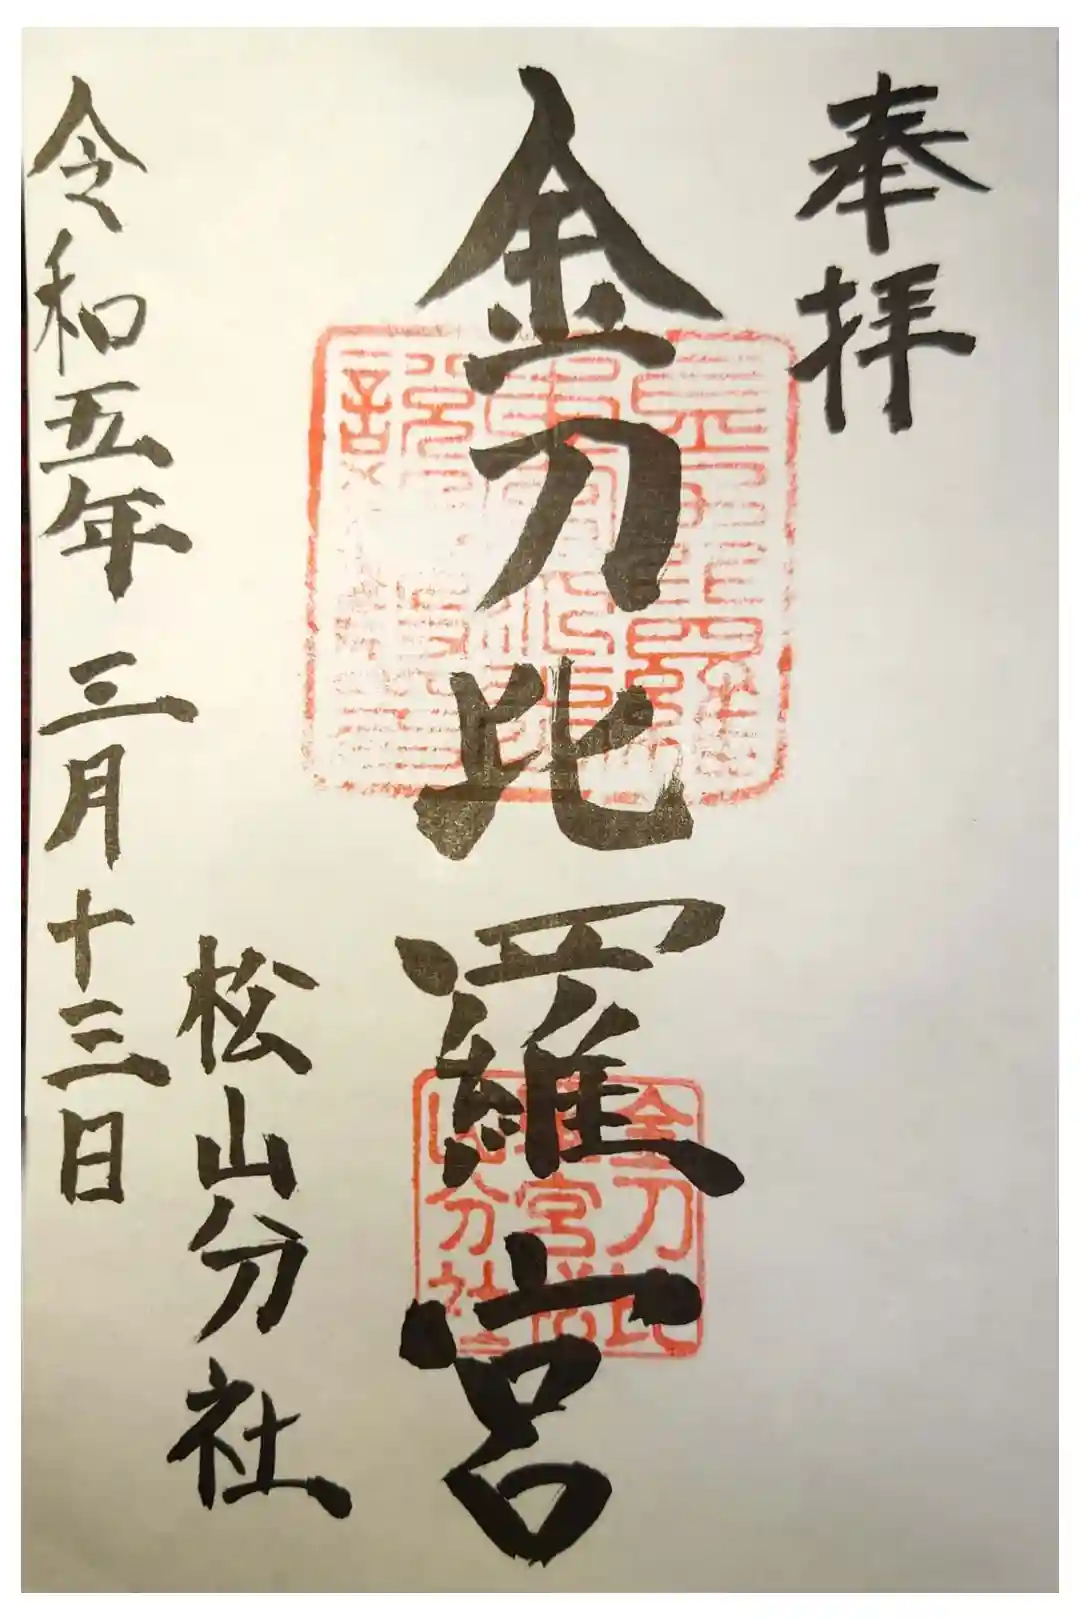 奉拝
金刀比羅宮
松山分社
令和五年三月十三日
金刀比
羅宮松
山分社